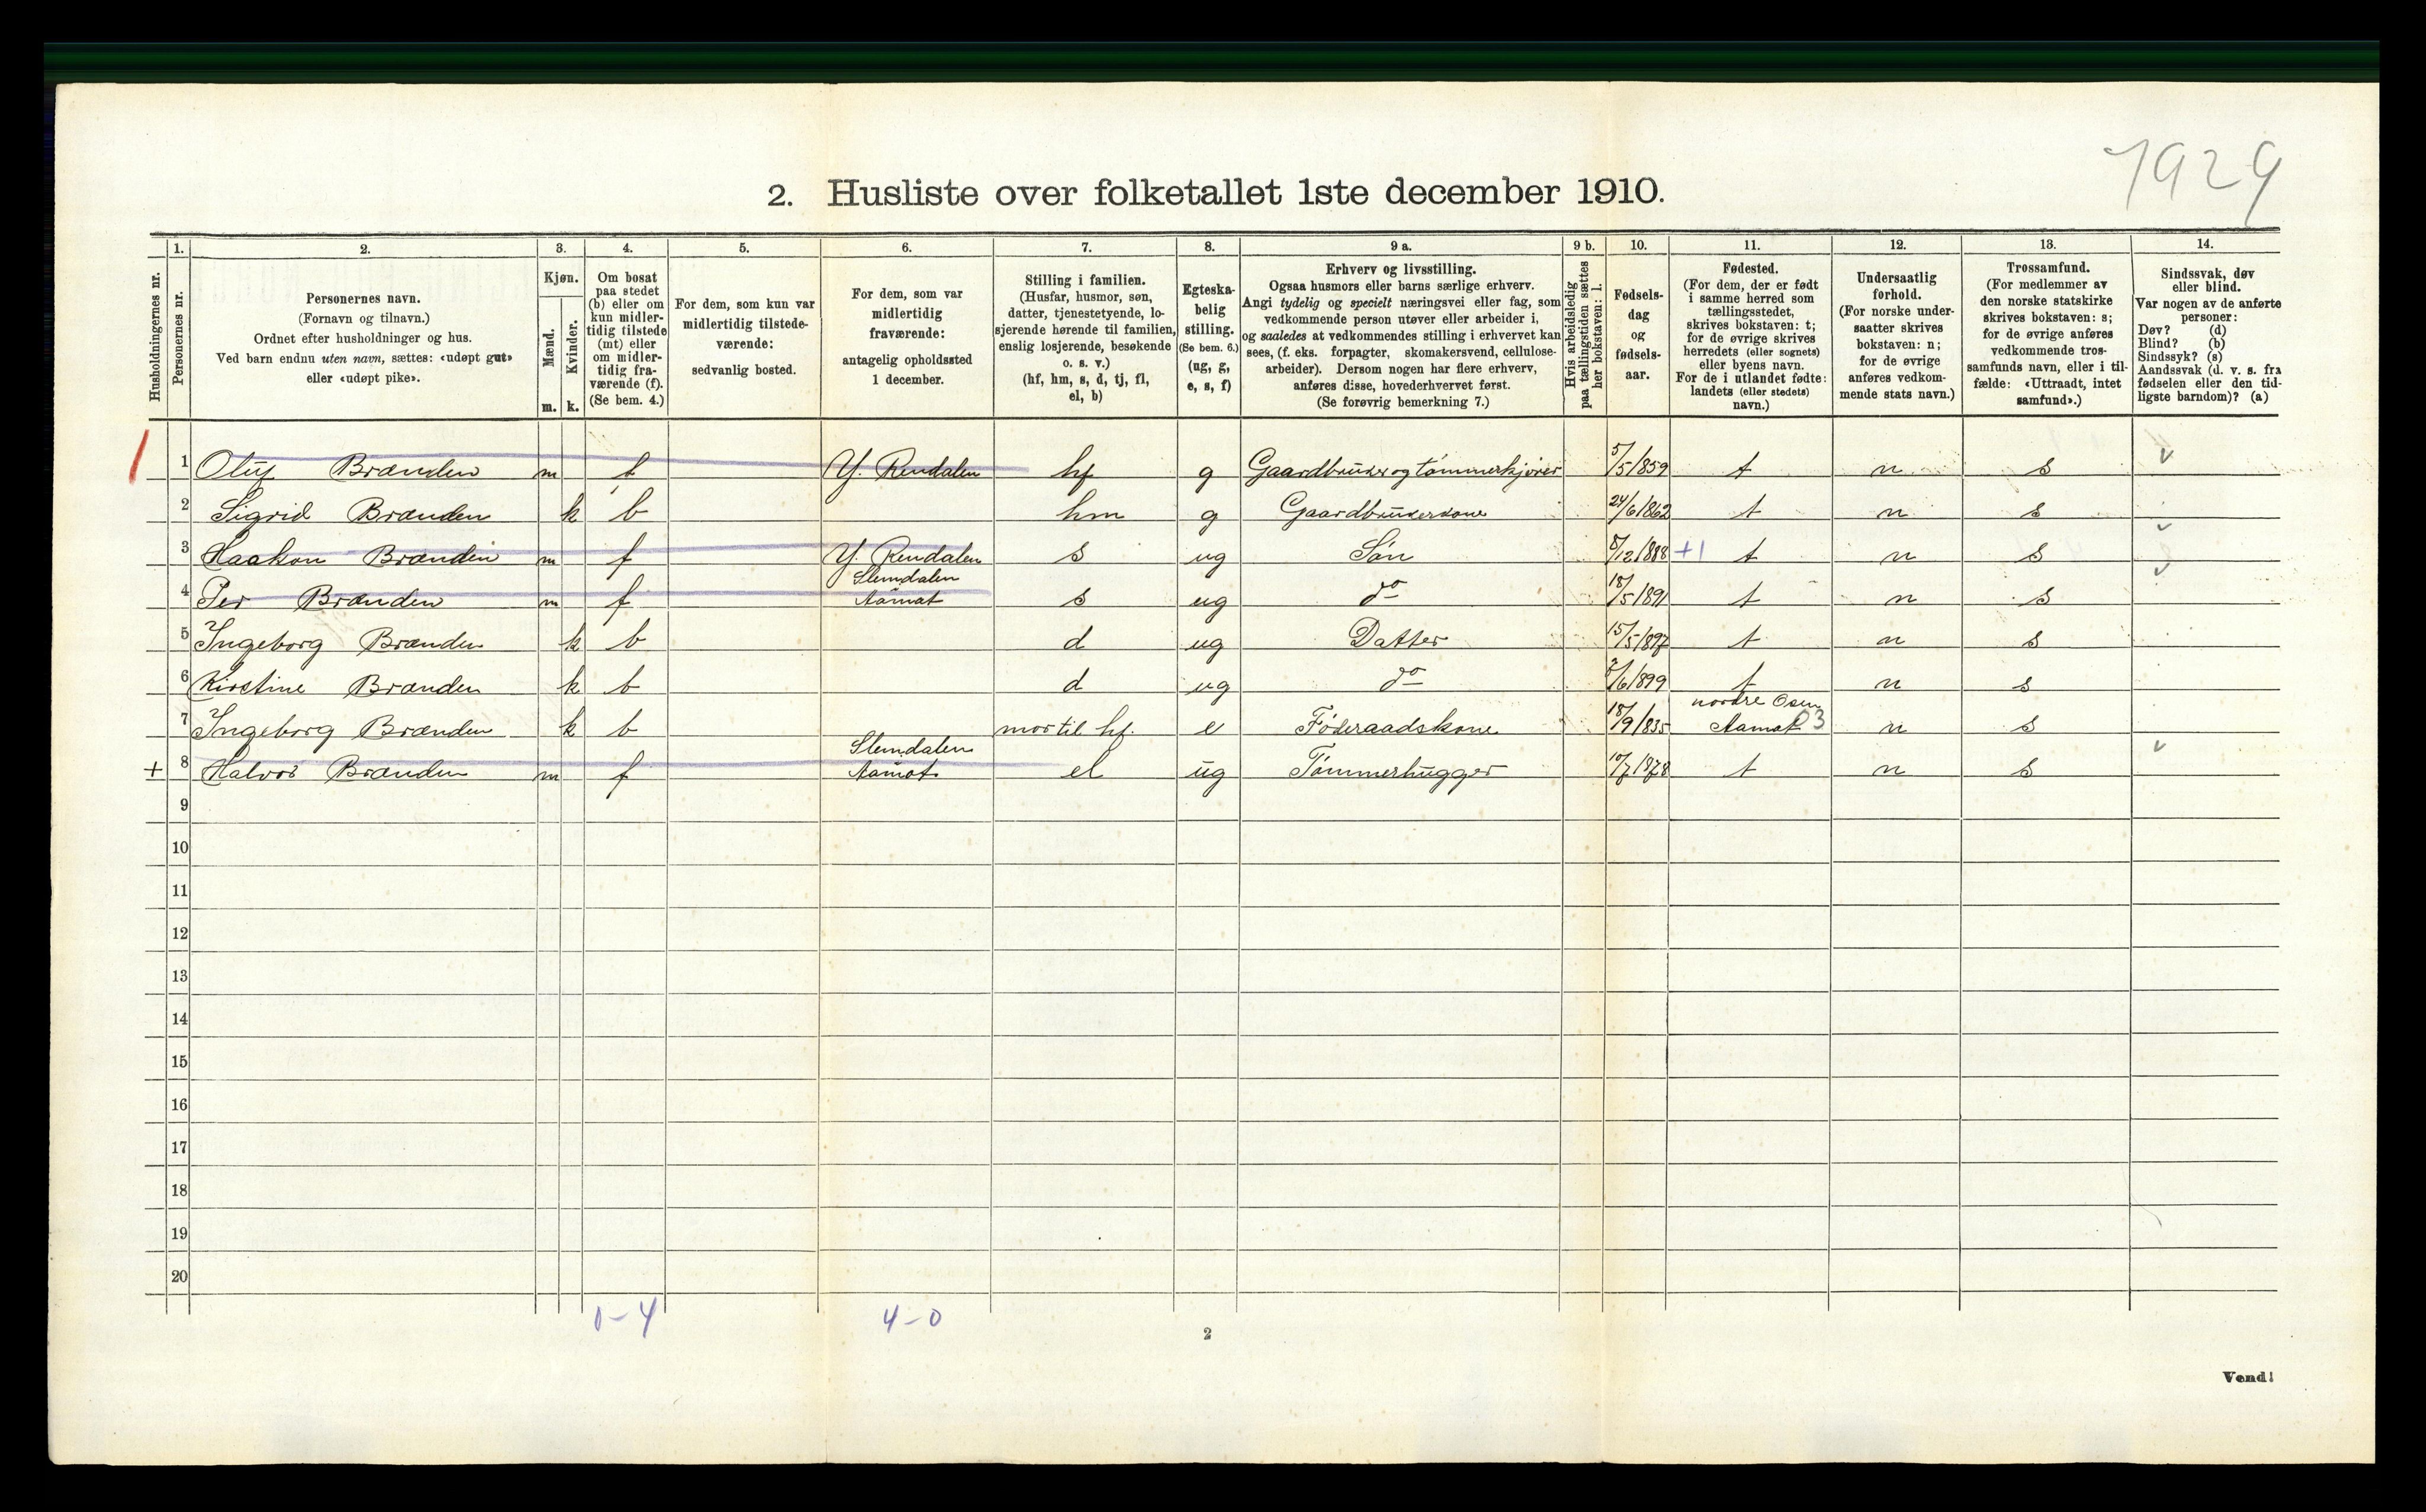 1929
2. Husliste over folketallet 1ste december 1910.
1. 2. 3. 4. 5. 6. 7. 8. 9 a. 9 b. 10. 11. 12. 13. 14.
Husholdningernes nr.
Personernes nr.
Personernes navn.
(Fornavn og tilnavn.)
Ordnet efter husholdninger og hus.
Ved barn endnu uten navn, sættes: «udøpt gut»
eller «udøpt pike».
Kjøn.
Mænd.
Kvinder.
m. k.
Om bosat
paa stedet
(b) eller om
kun midler-
tidig tilstede
(mt) eller
om midler-
tidig fra-
værende (f).
(Se bem. 4.)
For dem, som kun var
midlertidig tilstede-
værende:
sedvanlig bosted.
For dem, som var
midlertidig
fraværende:
antagelig opholdssted
1 december.
Stilling i familien.
(Husfar, husmor, søn,
datter, tjenestetyende, lo-
sjerende hørende til familien,
enslig losjerende, besøkende
o. s. v.)
(hf, hm, s, d, tj, fl,
el, b)
Egteska-
belig
stilling.
(Se bem. 6.)
(ug, g,
e, s, f)
Erhverv og livsstilling.
Ogsaa husmors eller barns særlige erhverv.
Angi tydelig og specielt næringsvei eller fag, som
vedkommende person utøver eller arbeider i,
og saaledes at vedkommendes stilling i erhvervet kan
sees, (f. eks. forpagter, skomakersvend, cellulose-
arbeider). Dersom nogen har flere erhverv,
anføres disse, hovederhvervet først.
(Se forøvrig bemerkning 7.)
Hvis arbeidsledig
paa tællingstiden sættes
her bokstaven: l.
Fødsels-
dag
og
fødsels-
aar.
Fødested.
(For dem, der er født
i samme herred som
tællingsstedet,
skrives bokstaven: t;
for de øvrige skrives
herredets (eller sognets)
eller byens navn.
For de i utlandet fødte:
landets (eller stedets)
navn.)
Undersaatlig
forhold.
(For norske under-
saatter skrives
bokstaven: n;
for de øvrige
anføres vedkom-
mende stats navn.)
Trossamfund.
(For medlemmer av
den norske statskirke
skrives bokstaven: s;
for de øvrige anføres
vedkommende tros-
samfunds navn, eller i til-
fælde: «Uttraadt, intet
samfund».)
Sindssvak, døv
eller blind.
Var nogen av de anførte
personer:
Døv? (d)
Blind? (b)
Sindssyk? (s)
Aandssvak (d. v. s. fra
fødselen eller den tid-
ligste barndom)? (a)
1 Oluf Brænden m f Y. Rendalen hf g Gaardbruker og tømmerkjører 5/5 1859 t n s v
2 Sigrid Brænden k b hm g Gaardbrukerkone 24/6 1862 t n s
3 Haakon Brænden m f Y. Rendalen s ug Søn 8/12 1888 +1 t n s v
Slemdalen
4 Per Brænden m f Aamot s ug do 18/5 1891 t n s v
5 Ingeborg Brænden k b d ug Datter 15/5 1897 t n s
6 Kirstine Brænden k b d ug do 2/6 1899 t n s
nordre Osen
7 Ingeborg Brænden k b mor til hf. e Føderaadskone 18/9 1835 Aamot 03 n s
Slemdalen
+ 8 Halvor Brænden m f Aamot el ug Tømmerhugger 10/7 1878 t n s v
9
10
11
12
13
14
15
16
17
18
19
20
0-4 4-0
2
Vend!